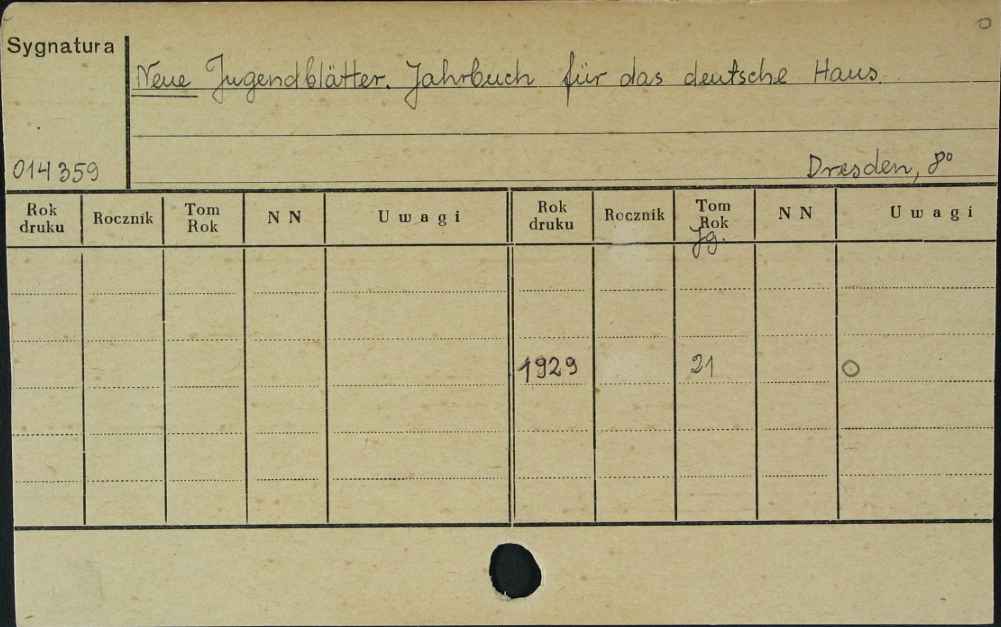 Sygnatura
Neue Jugendblätter. Jahrbuch für das deutsche Haus.
014359
Dresden, 8°
Rok druku Rocznik Tom Rok N N Uwagi Rok druku Rocznik Tom Rok N N Uwagi
Jg.
1929 21 O